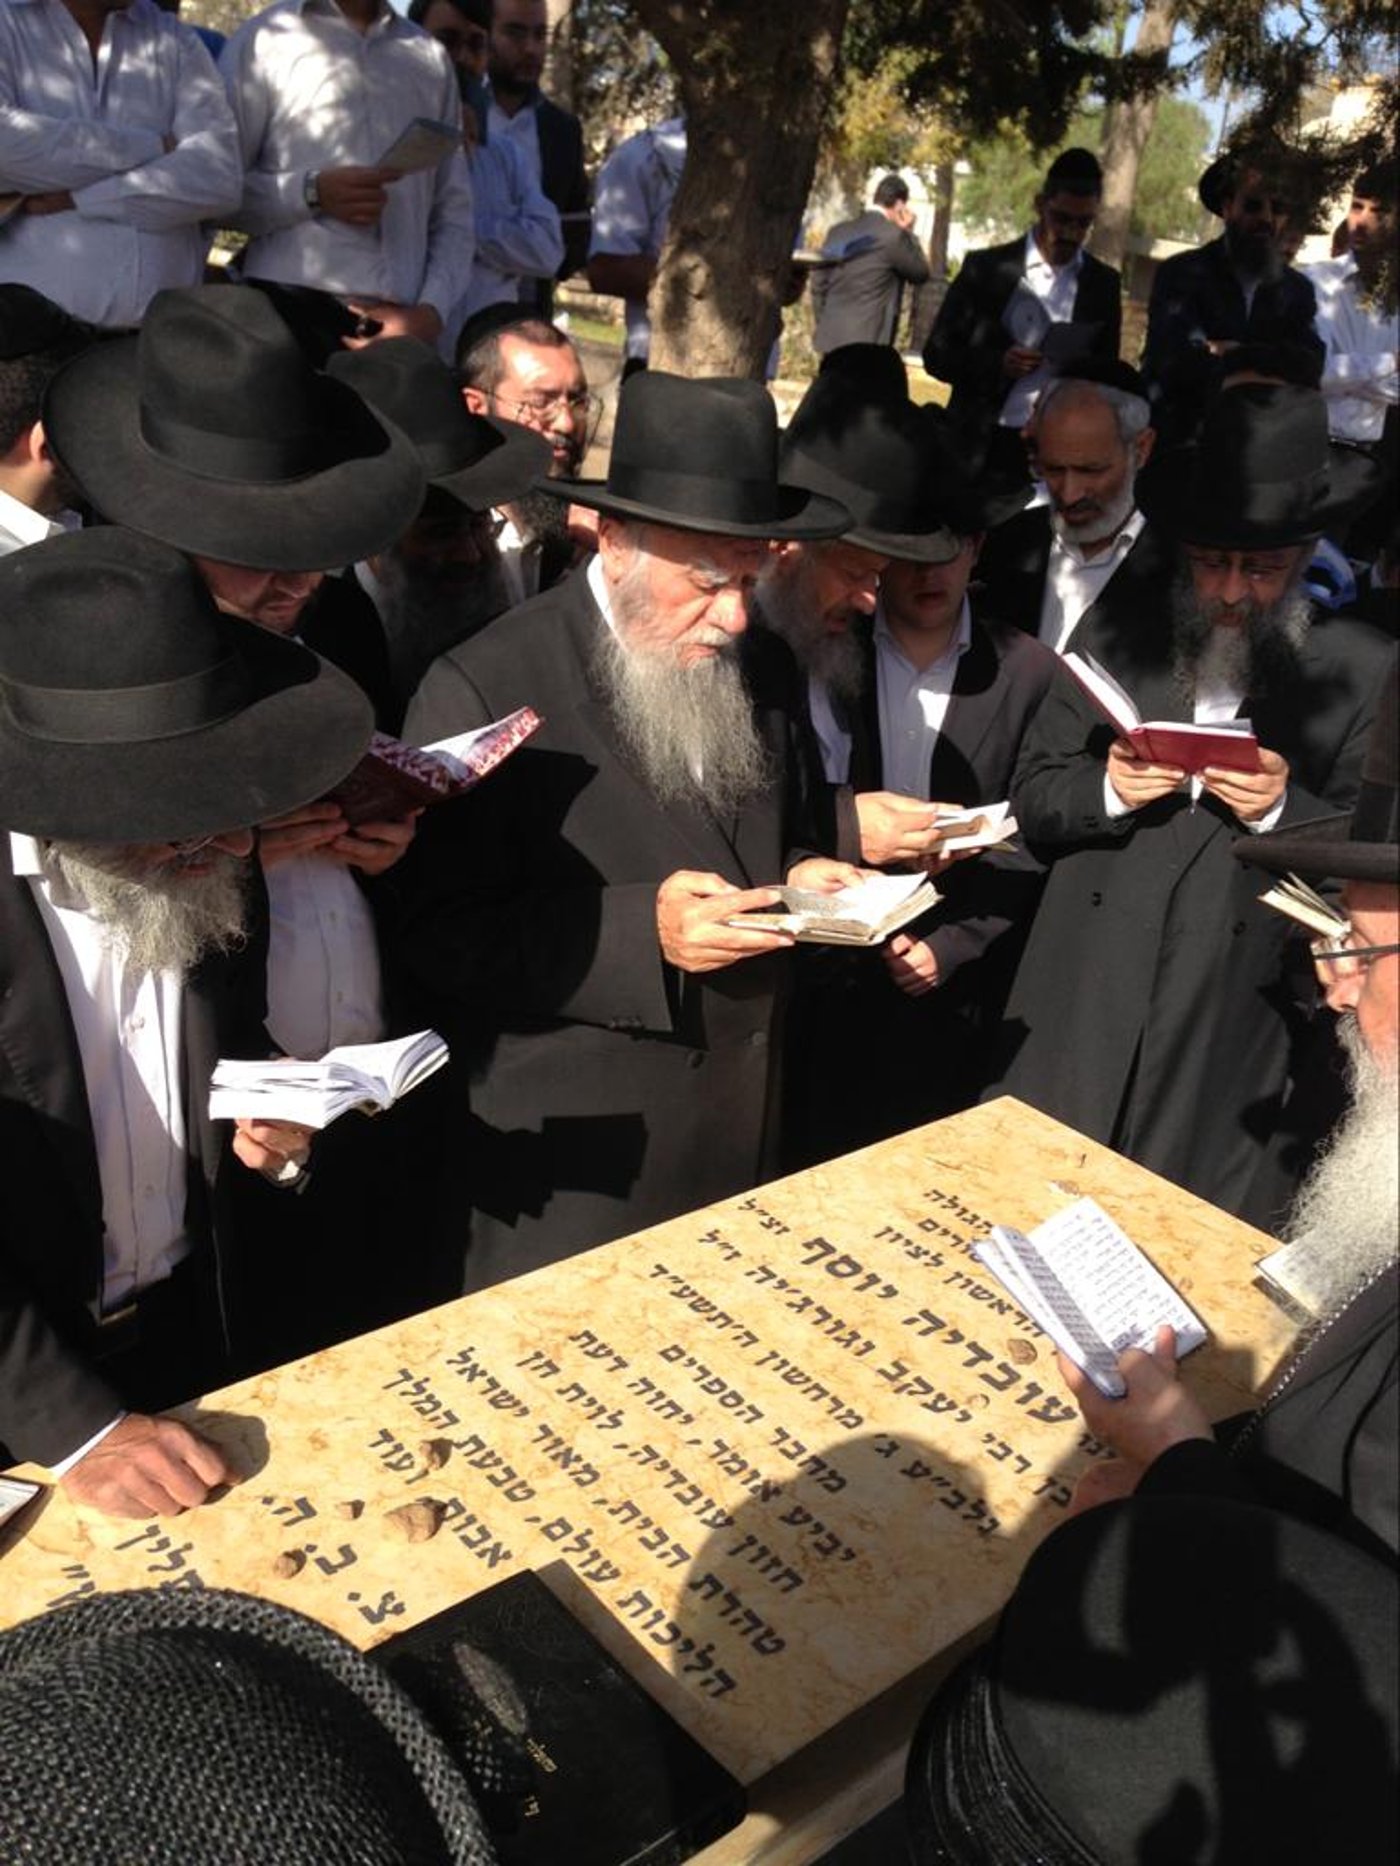 הגולה
הראשון לציון
עובדיה יוסף זצ״ל
בן רבי יעקב וגורג׳יה ז״ל
נלב״ע ג׳ מרחשון ה׳תשע״ד
מחבר הספרים
יביע אומר, יחוה דעת
חזון עובדיה, לוית חן
טהרת הבית, מאור ישראל
הליכות עולם, טבעת המלך
אבות ועוד
צ. ב. ה.